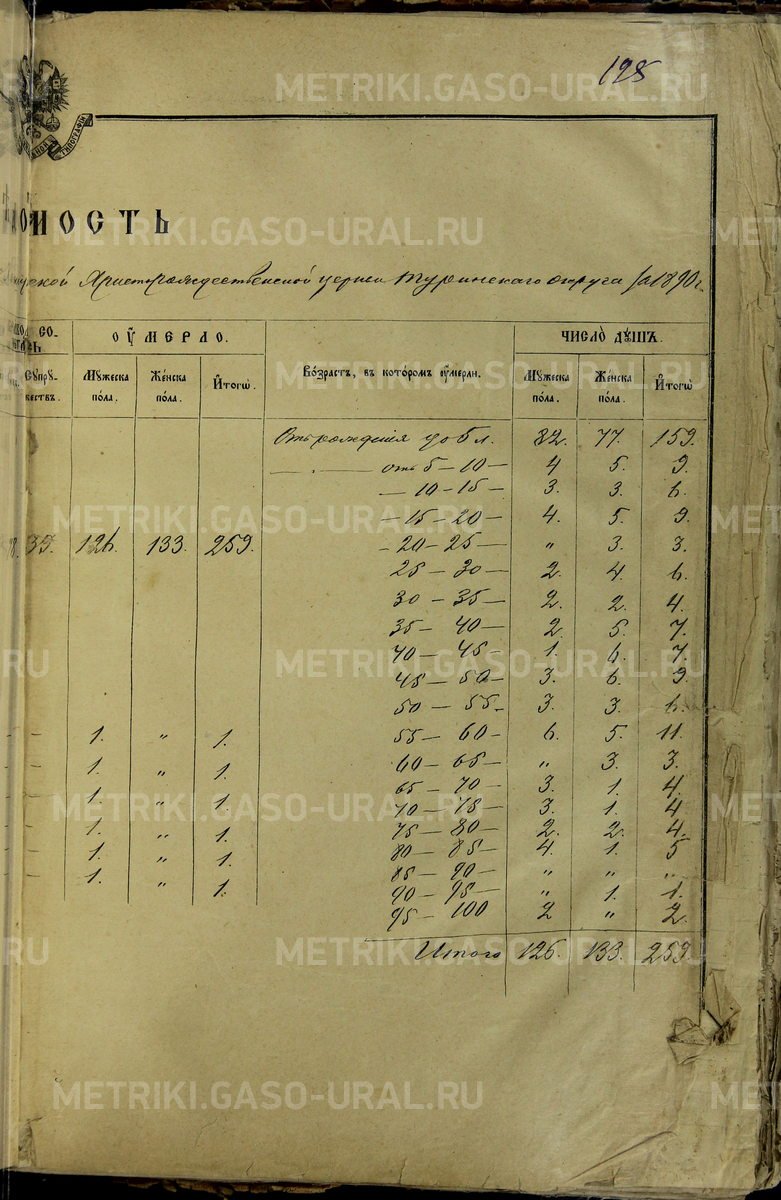 198
ТИПОГРАФІИ
МОСТЬ
Христорождественской церкви Туринскаго округа за 1890 г.
ОУМЕРЛО. ЧИСЛО ДУШЪ.
Мужеска пола. Женска пола. Итогѡ. Возрастъ, въ которомъ оумерли. Мужеска пола. Женска пола. Итогѡ
Отъ рожденія до 5 л. 82. 77. 159.
— „ — отъ 5 — 10 — 4 5. 9.
— 10 — 15 — 3. 3. 6.
— 15 — 20 — 4. 5. 9.
39. 126. 133. 259. — 20 — 25 — „ 3. 3.
25 — 30 — 2. 4. 6.
30 — 35 — 2. 2. 4.
35 — 40 — 2. 5. 7.
40 — 45 — 1. 6. 7.
45 — 50 — 3. 6. 9.
50 — 55 — 3. 3. 6.
— 1. „ 1. 55 — 60 — 6. 5. 11.
— 1. „ 1. 60 — 65 — „ 3. 3.
— 1. „ 1. 65 — 70 — 3. 1. 4.
70 — 75 — 3. 1. 4.
— 1. „ 1. 75 — 80 — 2. 2. 4.
— 1. „ 1. 80 — 85 — 4. 1. 5
— 1. „ 1. 85 — 90 — „ „ „
90 — 95 — „ 1. 1.
95 — 100 2 „ 2.
Итого 126. 133. 259.
METRIKI.GASO-URAL.RU